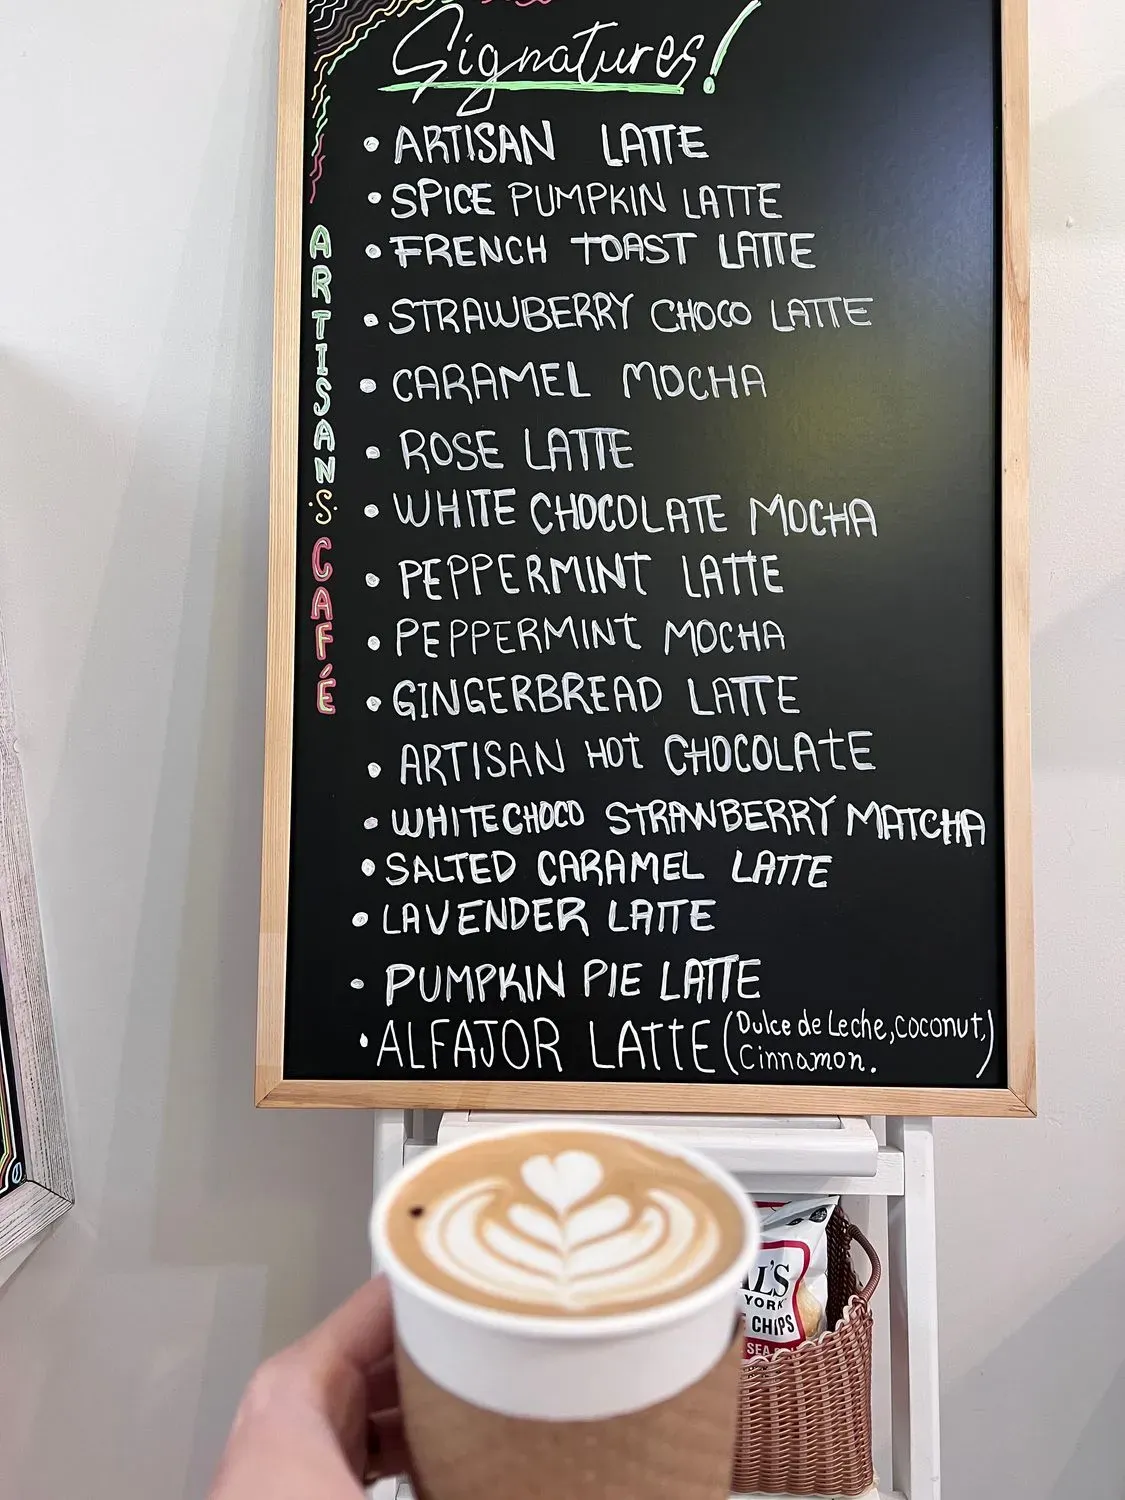 Signatures!
ARTISAN'S CAFÉ
• ARTISAN LATTE
• SPICE PUMPKIN LATTE
• FRENCH TOAST LATTE
• STRAWBERRY CHOCO LATTE
• CARAMEL MOCHA
• ROSE LATTE
• WHITE CHOCOLATE MOCHA
• PEPPERMINT LATTE
• PEPPERMINT MOCHA
• GINGERBREAD LATTE
• ARTISAN HOT CHOCOLATE
• WHITE CHOCO STRAWBERRY MATCHA
• SALTED CARAMEL LATTE
• LAVENDER LATTE
• PUMPKIN PIE LATTE
• ALFAJOR LATTE (Dulce de Leche, Coconut,
Cinnamon.)
AL'S
YORK
CHIPS
SEA